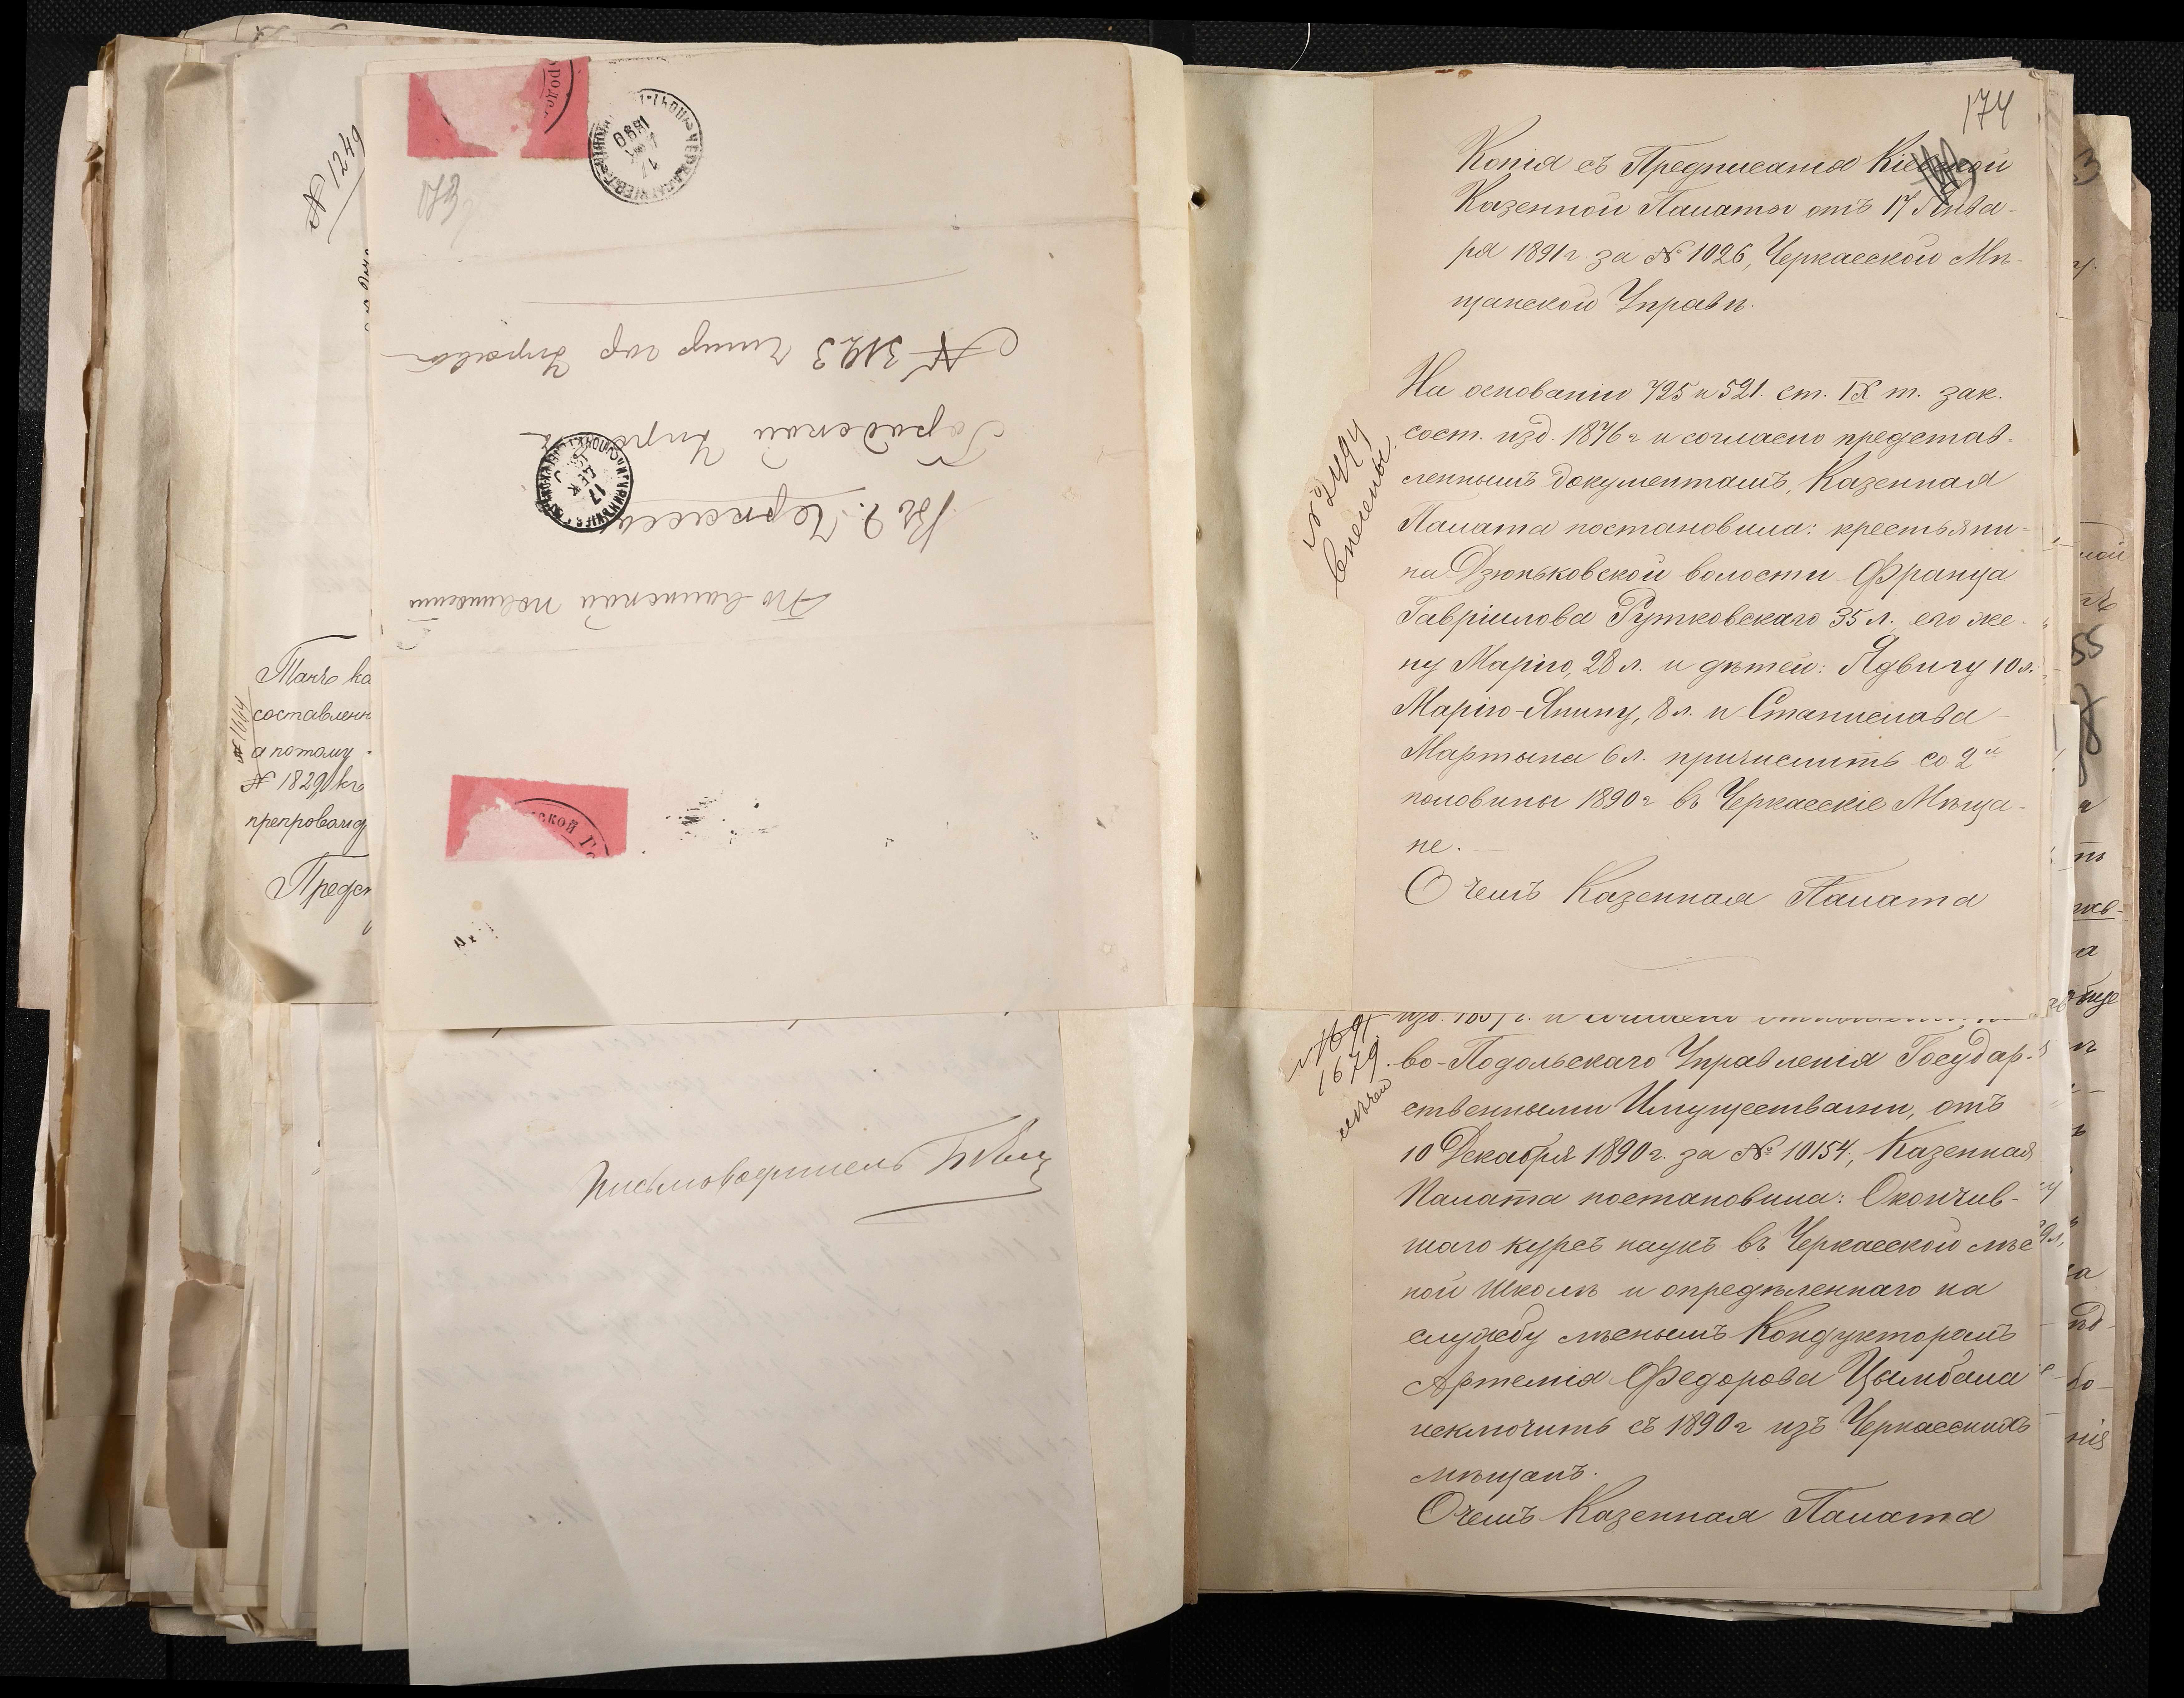 № 1249
Такъ ка
составленн
а потому
№ 1829 къ
препровожд
Предс
№ 1664
173
1890
По воинской повинности
Въ г. Черкассы
Городской Управѣ
№ 3193
17
ДЕК
ской Го
Письмоводитель
174
Копія съ Предписанія Кіевской
Казенной Палаты отъ 17 Янва-
ря 1891 г. за № 1026, Черкасской Мѣ-
щанской Управѣ.
На основаніи 725 и 521 ст. IX т. зак.
сост. изд. 1876 г и согласно представ-
леннымъ документамъ, Казенная
Палата постановила: крестьяни-
на Дзюньковской волости Франца
Гавріилова Рутковскаго 35 л. его же-
ну Марію, 28 л. и дѣтей: Ядвигу 10 л.
Марію-Янину, 8 л. и Станислава
Мартына 6 л. причислить со 2й
половины 1890 г въ Черкасскіе Мѣща-
не.
О чемъ Казенная Палата
внесены
1679
во-Подольскаго Управленія Государ-
ственными Имуществами, отъ
10 Декабря 1890 г. за № 10154, Казенная
Палата постановила: Окончив-
шаго курсъ наукъ въ Черкасской лѣс
ной Школѣ и опредѣленнаго на
службу лѣснымъ Кондукторомъ
Артемія Федорова Цымбала
исключить съ 1890 г изъ Черкасскихъ
мѣщанъ.
О чемъ Казенная Палата